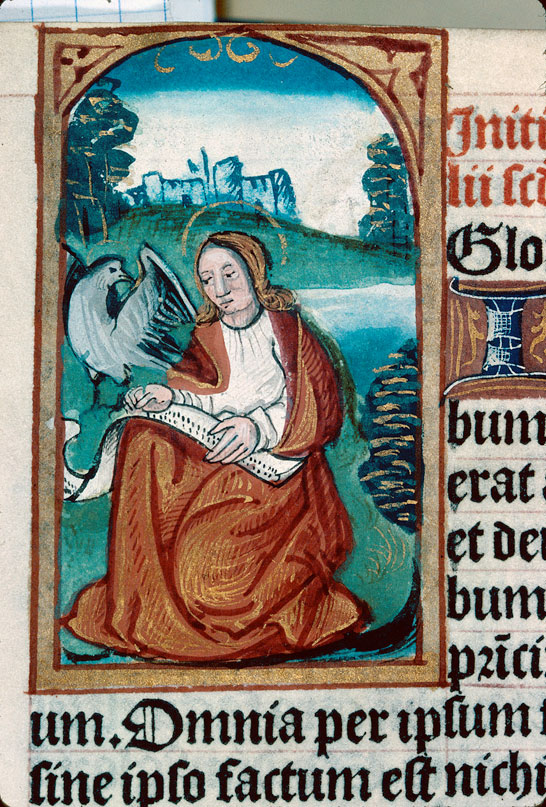 Initi
lii scd
Glo
I
bum
erat
et de
bum
prīci
um. Omnia per ipsum f
sine ipso factum est nichi